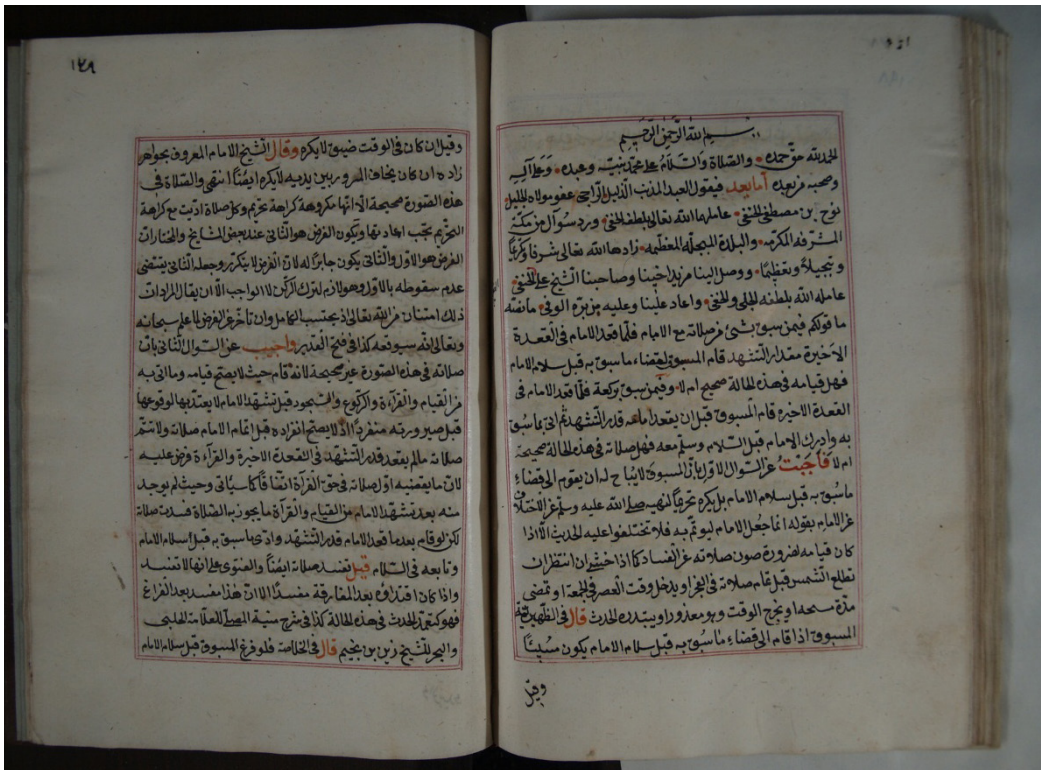 بسم الله الرحمن الرحيم
الحمد لله حق حمده والصلاة والسلام على محمد نبيه وعبده وعلى آله
وصحبه من بعده أما بعد فيقول العبد المذنب الذليل الراجي عفو مولاه الجليل
نوح بن مصطفى الحنفي عاملهما الله تعالى بلطفه الخفي ورد سوآل من مكة
المشرفة المكرمه والبلدة المبجلة المعظمه زادها الله تعالى شرفا وتكريما
وتبجيلا وتعظيما ووصل الينا من يد اخينا وصاحبنا الشيخ على الحنفي
عامله الله بلطفه الجلي والخفي واعاد علينا وعليه من بره الوفي مانصه
ما قولكم فيمن سبق بشئ من صلاته مع الامام فلما قعد الامام في القعدة
الاخيرة مقدار التشهد قام المسبوق لقضاء ما سبق به قبل سلام الامام
فهل قيامه في هذه الحالة صحيح ام لا وفيمن سبق بركعة فلما قعد الامام في
القعدة الاخيره قام المسبوق قبل ان يقعد امامه قدر التشهد ثم اتى بما سبق
به وادرك الامام قبل السلام وسلم معه فهل صلاته في هذه الحالة صحيحة
ام لا فاجبت عن السوال الاول بان المسبوق لايباح له ان يقوم الى قضاء
ماسبق به قبل سلام الامام بل يكره تحريما لنهيه صلى الله عليه وسلم عن الاختلاف
عن الامام بقوله انما جعل الامام ليوتم به فلا تختلفوا عليه الحديث الا اذا
كان قيامه لضرورة صون صلاته عن الفساد كما اذا خشي ان انتظر ان
تطلع الشمس قبل تمام صلاته في الفجر او يدخل وقت العصر في الجمعة او تمضى
مدة مسحه او يخرج الوقت وهو معذور او يبتدره الحدث قال في الظهيرية
المسبوق اذا قام الى قضاء ماسبق به قبل سلام الامام يكون مسيئا
وقيل
١٢٩
وقيل ان كان في الوقت ضيق لايكره وقال الشيخ الامام المعروف بجواهر
زاده ان كان يخاف المرور بين يديه لايكره ايضا انتهى والصلاة في
هذه الصورة صحيحة الا انها مكروهة كراهة تحريم وكل صلاة اديت مع كراهة
التحريم تجب اعادتها ويكون الفرض هو الثاني عند بعض المشايخ والمختار ان
الفرض هو الاول والثاني يكون جابرا له لان الفرض لا يتكرر وجعله الثاني يقتضى
عدم سقوطه بالاول وهو لازم لترك الركن لا الواجب الا ان يقال المراد ان
ذلك امتنان من الله تعالى اذ يحتسب الكامل وان تاخر عن الفرض لما علم سبحانه
وتعالى انه سيوقعه كذا في فتح القدير واجيب عن السوال الثاني بان
صلاته في هذه الصورة غير صحيحة لانه قام حيث لا يصح قيامه وما اتى به
من القيام والقرآءة والركوع والسجود قبل تشهد الامام لا يعتد بها لوقوعها
قبل صيرورته منفردا اذ لا يصح انفراده قبل اتمام الامام صلاته ولا تتم
صلاته مالم يقعد قدر التشهد في القعدة الاخيرة والقرآءة فرض عليه
لان ما يقضيه اول صلاته في حق القرآءة اتفاقا كما سيأتى وحيث لم يوجد
منه بعد تشهد الامام من القيام والقرأة مايجوز به الصلاة فسدت صلاته
لكن لو قام بعد ما قعد الامام قدر التشهد وادى ما سبق به قبل سلام الامام
وتابعه في السلام قيل تفسد صلاته ايضا والفتوى على انها لا تفسد
واذا كان اقتداؤه بعد المفارقة مفسدا الا ان هذا مفسد بعد الفراغ
فهو كتعمد الحدث في هذه الحالة كذا في شرح منية المصلى للعلامة الحلبي
والبحر للشيخ زين بن نجيم قال في الخلاصة فلو فرغ المسبوق قبل سلام الامام